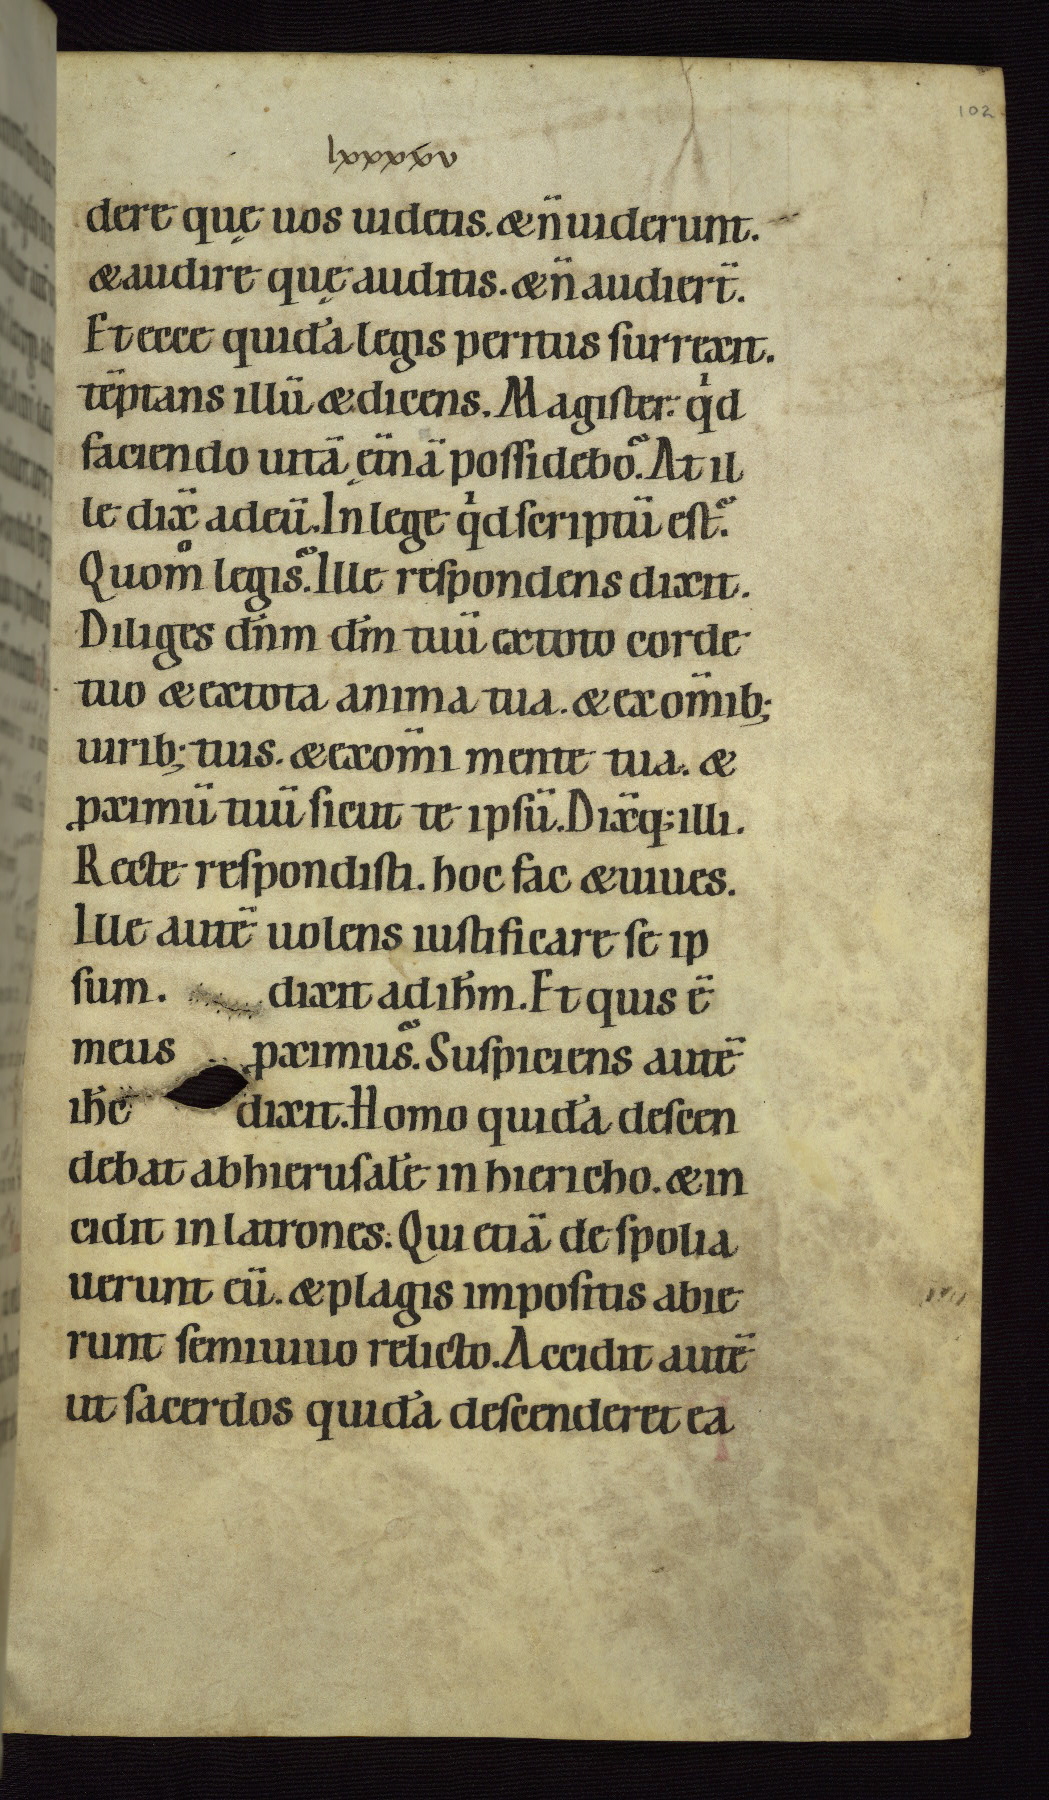 102
lxxxxxv
dere quę uos uidetis. & n̄ uiderunt.
& audire quę auditis. & n̄ audiert̄.
Et ecce quidā legis peritus surrexit.
tēptans illū & dicens. Magister: qͥd
faciendo uitā ęt̄nā possidebo? At il
le dix̄ ad eū. In lege qͥd scriptū est?
Quom̊ legis? Ille respondens dixit.
Diliges dn̄m dm̄ tuū ex toto corde
tuo & ex tota anima tua. & ex om̄ib;
uirib; tuis. & ex om̄i mente tua. &
ꝓximū tuū sicut te ipsū. Dix̄q; illi.
Recte respondisti. hoc fac & uiues.
Ille autē uolens iustificare se ip
sum. dixit ad ih̄m. Et quis ē
meus ꝓximus? Suspiciens autē
ih̄c dixit. Homo quidā descen
debat ab hierusalē in hiericho. & in
cidit in latrones. Qui etiā despolia
uerunt eū. & plagis impositis abie
runt semiuiuo relicto. Accidit autē
ut sacerdos quidā descenderet ea